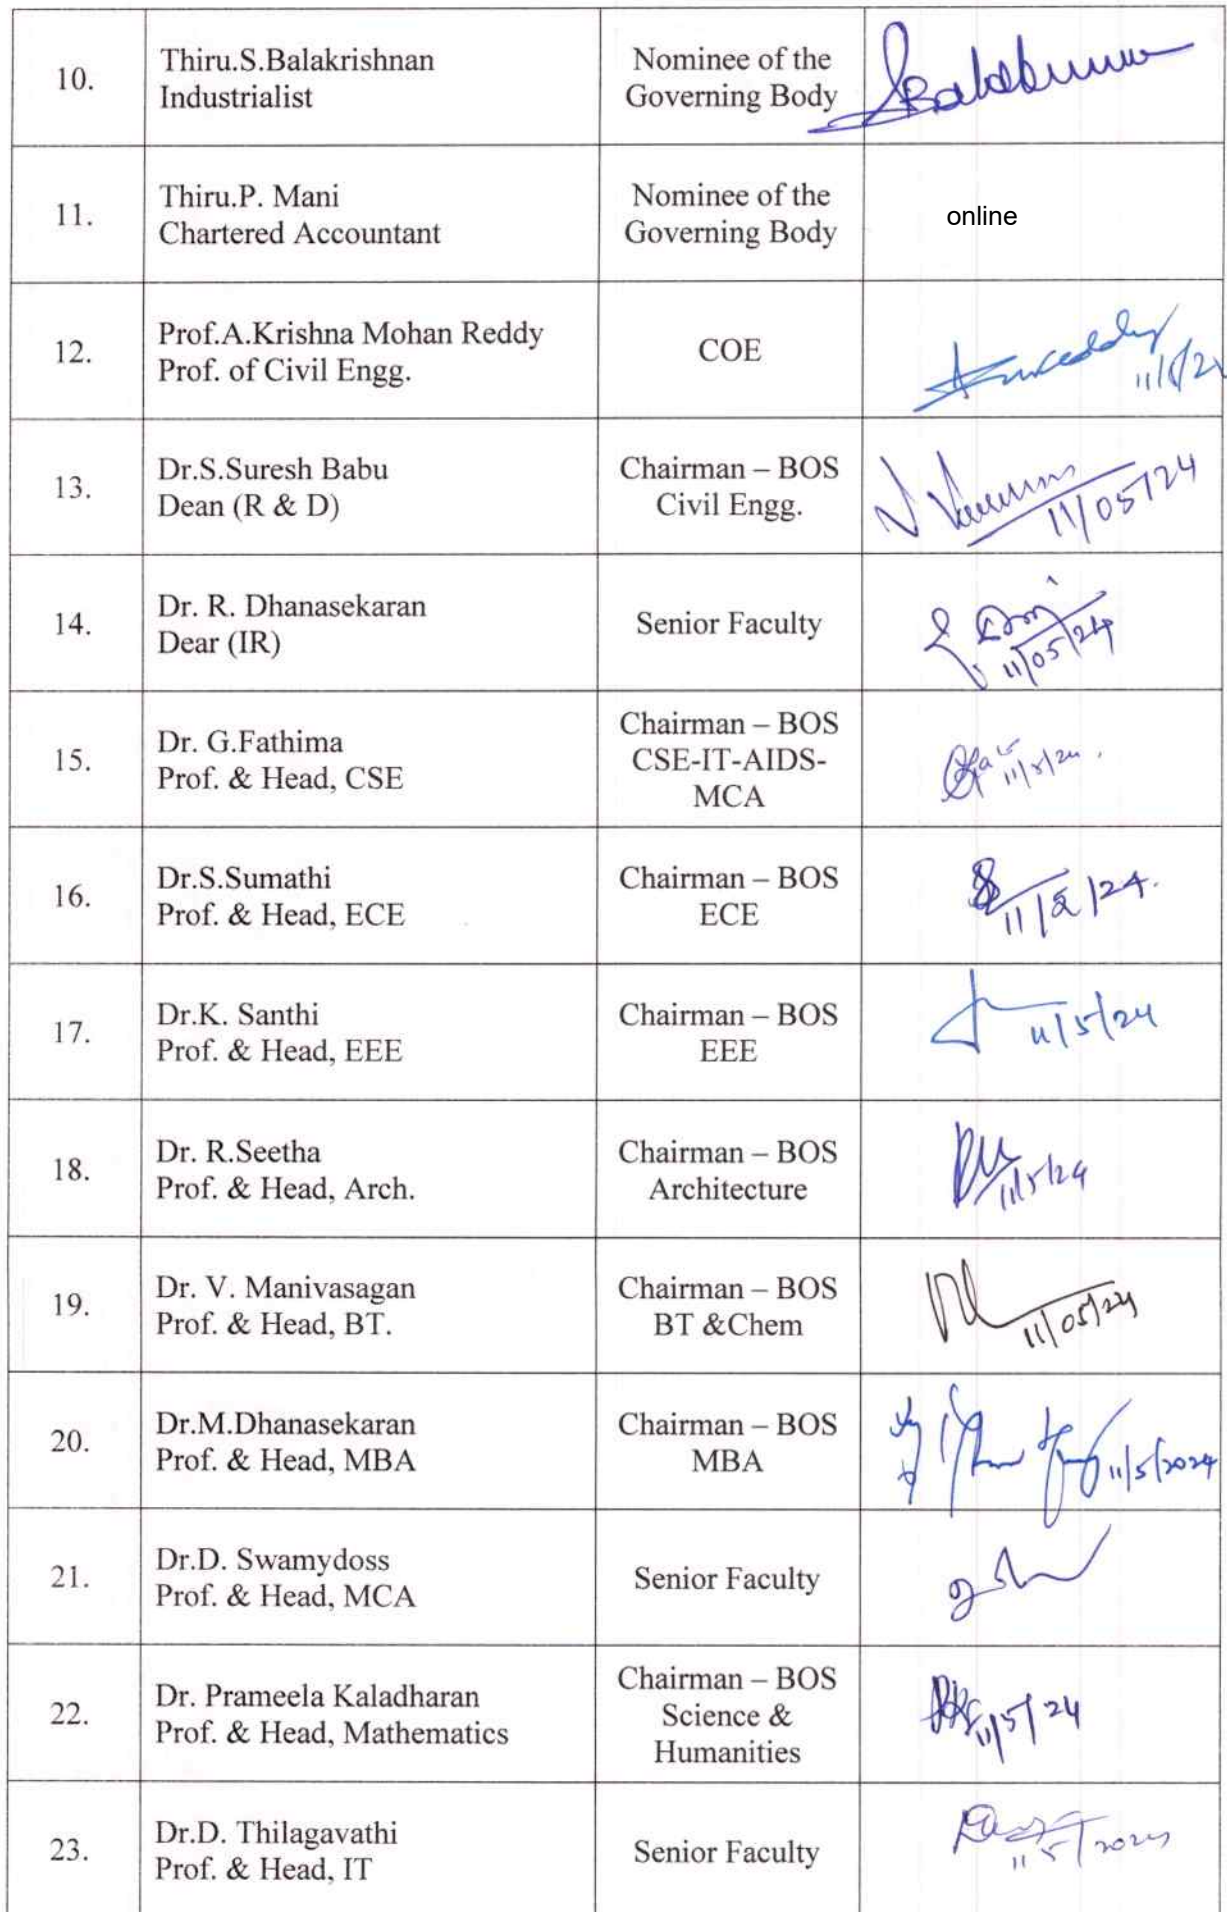 10.
Thiru.S.Balakrishnan
Industrialist
Nominee of the
Governing Body
11.
Thiru.P. Mani
Chartered Accountant
Nominee of the
Governing Body
online
12.
Prof.A.Krishna Mohan Reddy
Prof. of Civil Engg.
COE
13.
Dr.S.Suresh Babu
Dean (R & D)
Chairman – BOS
Civil Engg.
11/05/24
14.
Dr. R. Dhanasekaran
Dear (IR)
Senior Faculty
11/05/24
15.
Dr. G.Fathima
Prof. & Head, CSE
Chairman – BOS
CSE-IT-AIDS-
MCA
11/5/24.
16.
Dr.S.Sumathi
Prof. & Head, ECE
Chairman – BOS
ECE
17.
Dr.K. Santhi
Prof. & Head, EEE
Chairman – BOS
EEE
11/5/24
18.
Dr. R.Seetha
Prof. & Head, Arch.
Chairman – BOS
Architecture
11/5/24
19.
Dr. V. Manivasagan
Prof. & Head, BT.
Chairman – BOS
BT &Chem
11/05/24
20.
Dr.M.Dhanasekaran
Prof. & Head, MBA
Chairman – BOS
MBA
11/5/2024
21.
Dr.D. Swamydoss
Prof. & Head, MCA
Senior Faculty
22.
Dr. Prameela Kaladharan
Prof. & Head, Mathematics
Chairman – BOS
Science &
Humanities
11/5/24
23.
Dr.D. Thilagavathi
Prof. & Head, IT
Senior Faculty
11/5/2024